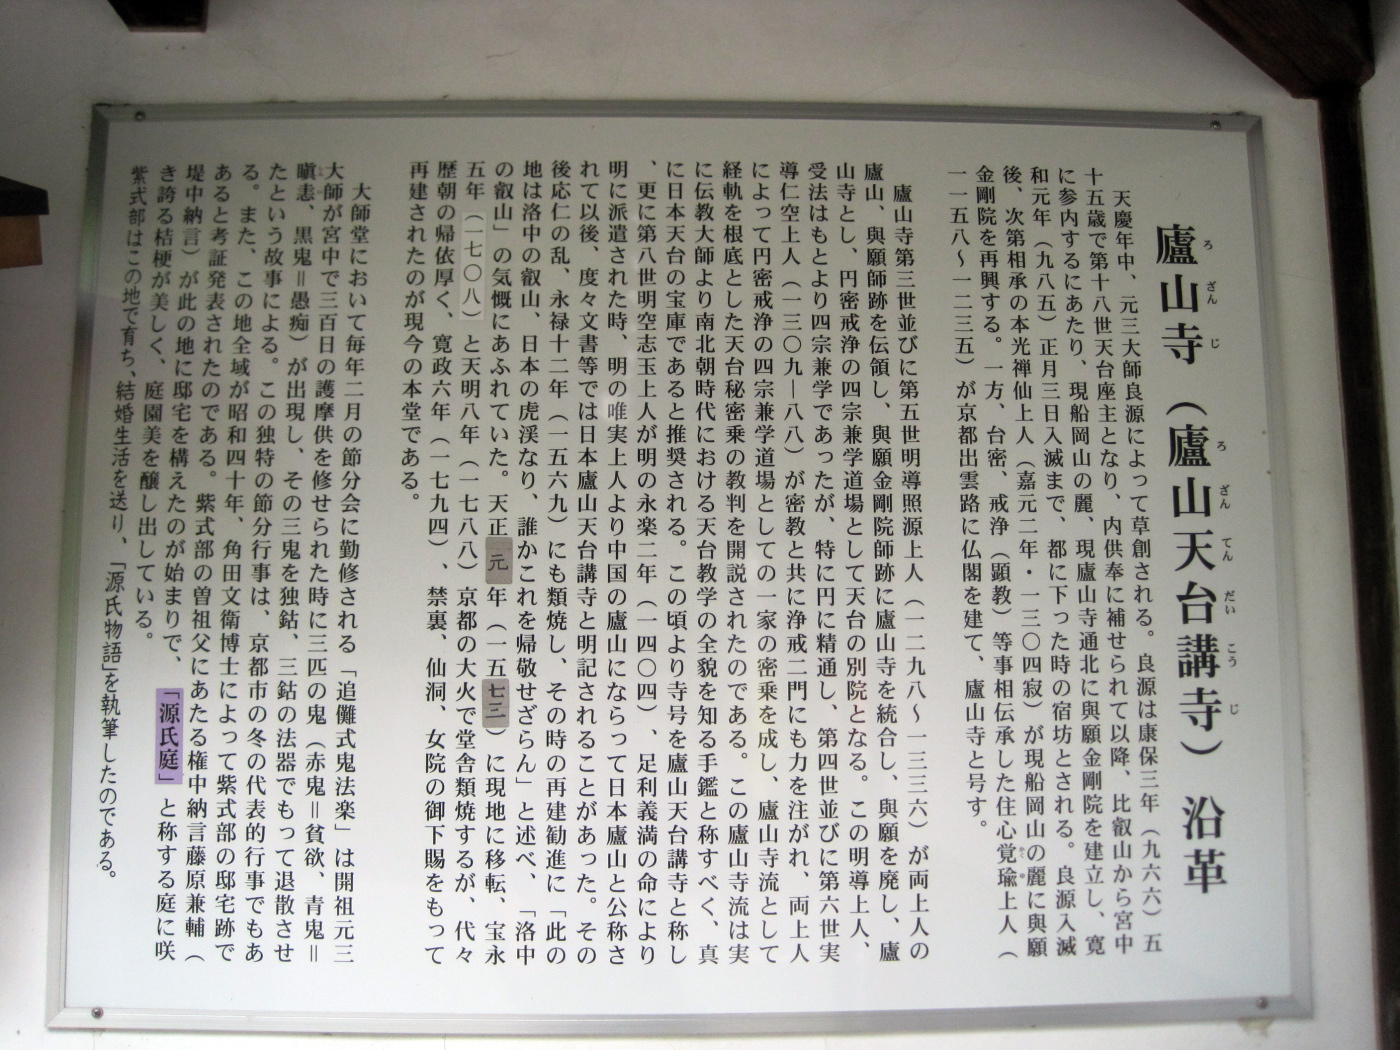 廬山寺（廬山天台講寺）沿革
天慶年中、元三大師良源によって草創される。良源は康保三年（九六六）五
十五歳で第十八世天台座主となり、内供奉に補せられて以降、比叡山から宮中
に参内するにあたり、現船岡山の麗、現廬山寺通北に與願金剛院を建立し、寛
和元年（九八五）正月三日入滅まで、都に下った時の宿坊とされる。良源入滅
後、次第相承の本光禅仙上人（嘉元二年・一三〇四寂）が現船岡山の麗に與願
金剛院を再興する。一方、台密、戒浄（顕教）等事相伝承した住心覚瑜上人（
一一五八〜一二三五）が京都出雲路に仏閣を建て、廬山寺と号す。
廬山寺第三世並びに第五世明導照源上人（一二九八〜一三三六）が両上人の
廬山、與願師跡を伝領し、與願金剛院師跡に廬山寺を統合し、與願を廃し、廬
山寺とし、円密戒浄の四宗兼学道場として天台の別院となる。この明導上人、
受法はもとより四宗兼学であったが、特に円に精通し、第四世並びに第六世実
導仁空上人（一三〇九―八八）が密教と共に浄戒二門にも力を注がれ、両上人
によって円密戒浄の四宗兼学道場としての一家の密乗を成し、廬山寺流として
経軌を根底とした天台秘密乗の教判を開説されたのである。この廬山寺流は実
に伝教大師より南北朝時代における天台教学の全貌を知る手鑑と称すべく、真
に日本天台の宝庫であると推奨される。この頃より寺号を廬山天台講寺と称し
、更に第八世明空志玉上人が明の永楽二年（一四〇四）、足利義満の命により
明に派遣された時、明の唯実上人より中国の廬山にならって日本廬山と公称さ
れて以後、度々文書等では日本廬山天台講寺と明記されることがあった。その
後応仁の乱、永禄十二年（一五六九）にも類焼し、その時の再建勧進に「此の
地は洛中の叡山、日本の虎渓なり、誰かこれを帰敬せざらん」と述べ、「洛中
の叡山」の気慨にあふれていた。天正元年（一五七三）に現地に移転、宝永
五年（一七〇八）と天明八年（一七八八）京都の大火で堂舎類焼するが、代々
歴朝の帰依厚く、寛政六年（一七九四）、禁裏、仙洞、女院の御下賜をもって
再建されたのが現今の本堂である。
大師堂において毎年二月の節分会に勤修される「追儺式鬼法楽」は開祖元三
大師が宮中で三百日の護摩供を修せられた時に三匹の鬼（赤鬼＝貧欲、青鬼＝
瞋恚、黒鬼＝愚痴）が出現し、その三鬼を独鈷、三鈷の法器でもって退散させ
たという故事による。この独特の節分行事は、京都市の冬の代表的行事でもあ
る。また、この地全域が昭和四十年、角田文衛博士によって紫式部の邸宅跡で
あると考証発表されたのである。紫式部の曽祖父にあたる権中納言藤原兼輔（
堤中納言）が此の地に邸宅を構えたのが始まりで、「源氏庭」と称する庭に咲
き誇る桔梗が美しく、庭園美を醸し出している。
紫式部はこの地で育ち、結婚生活を送り、「源氏物語」を執筆したのである。